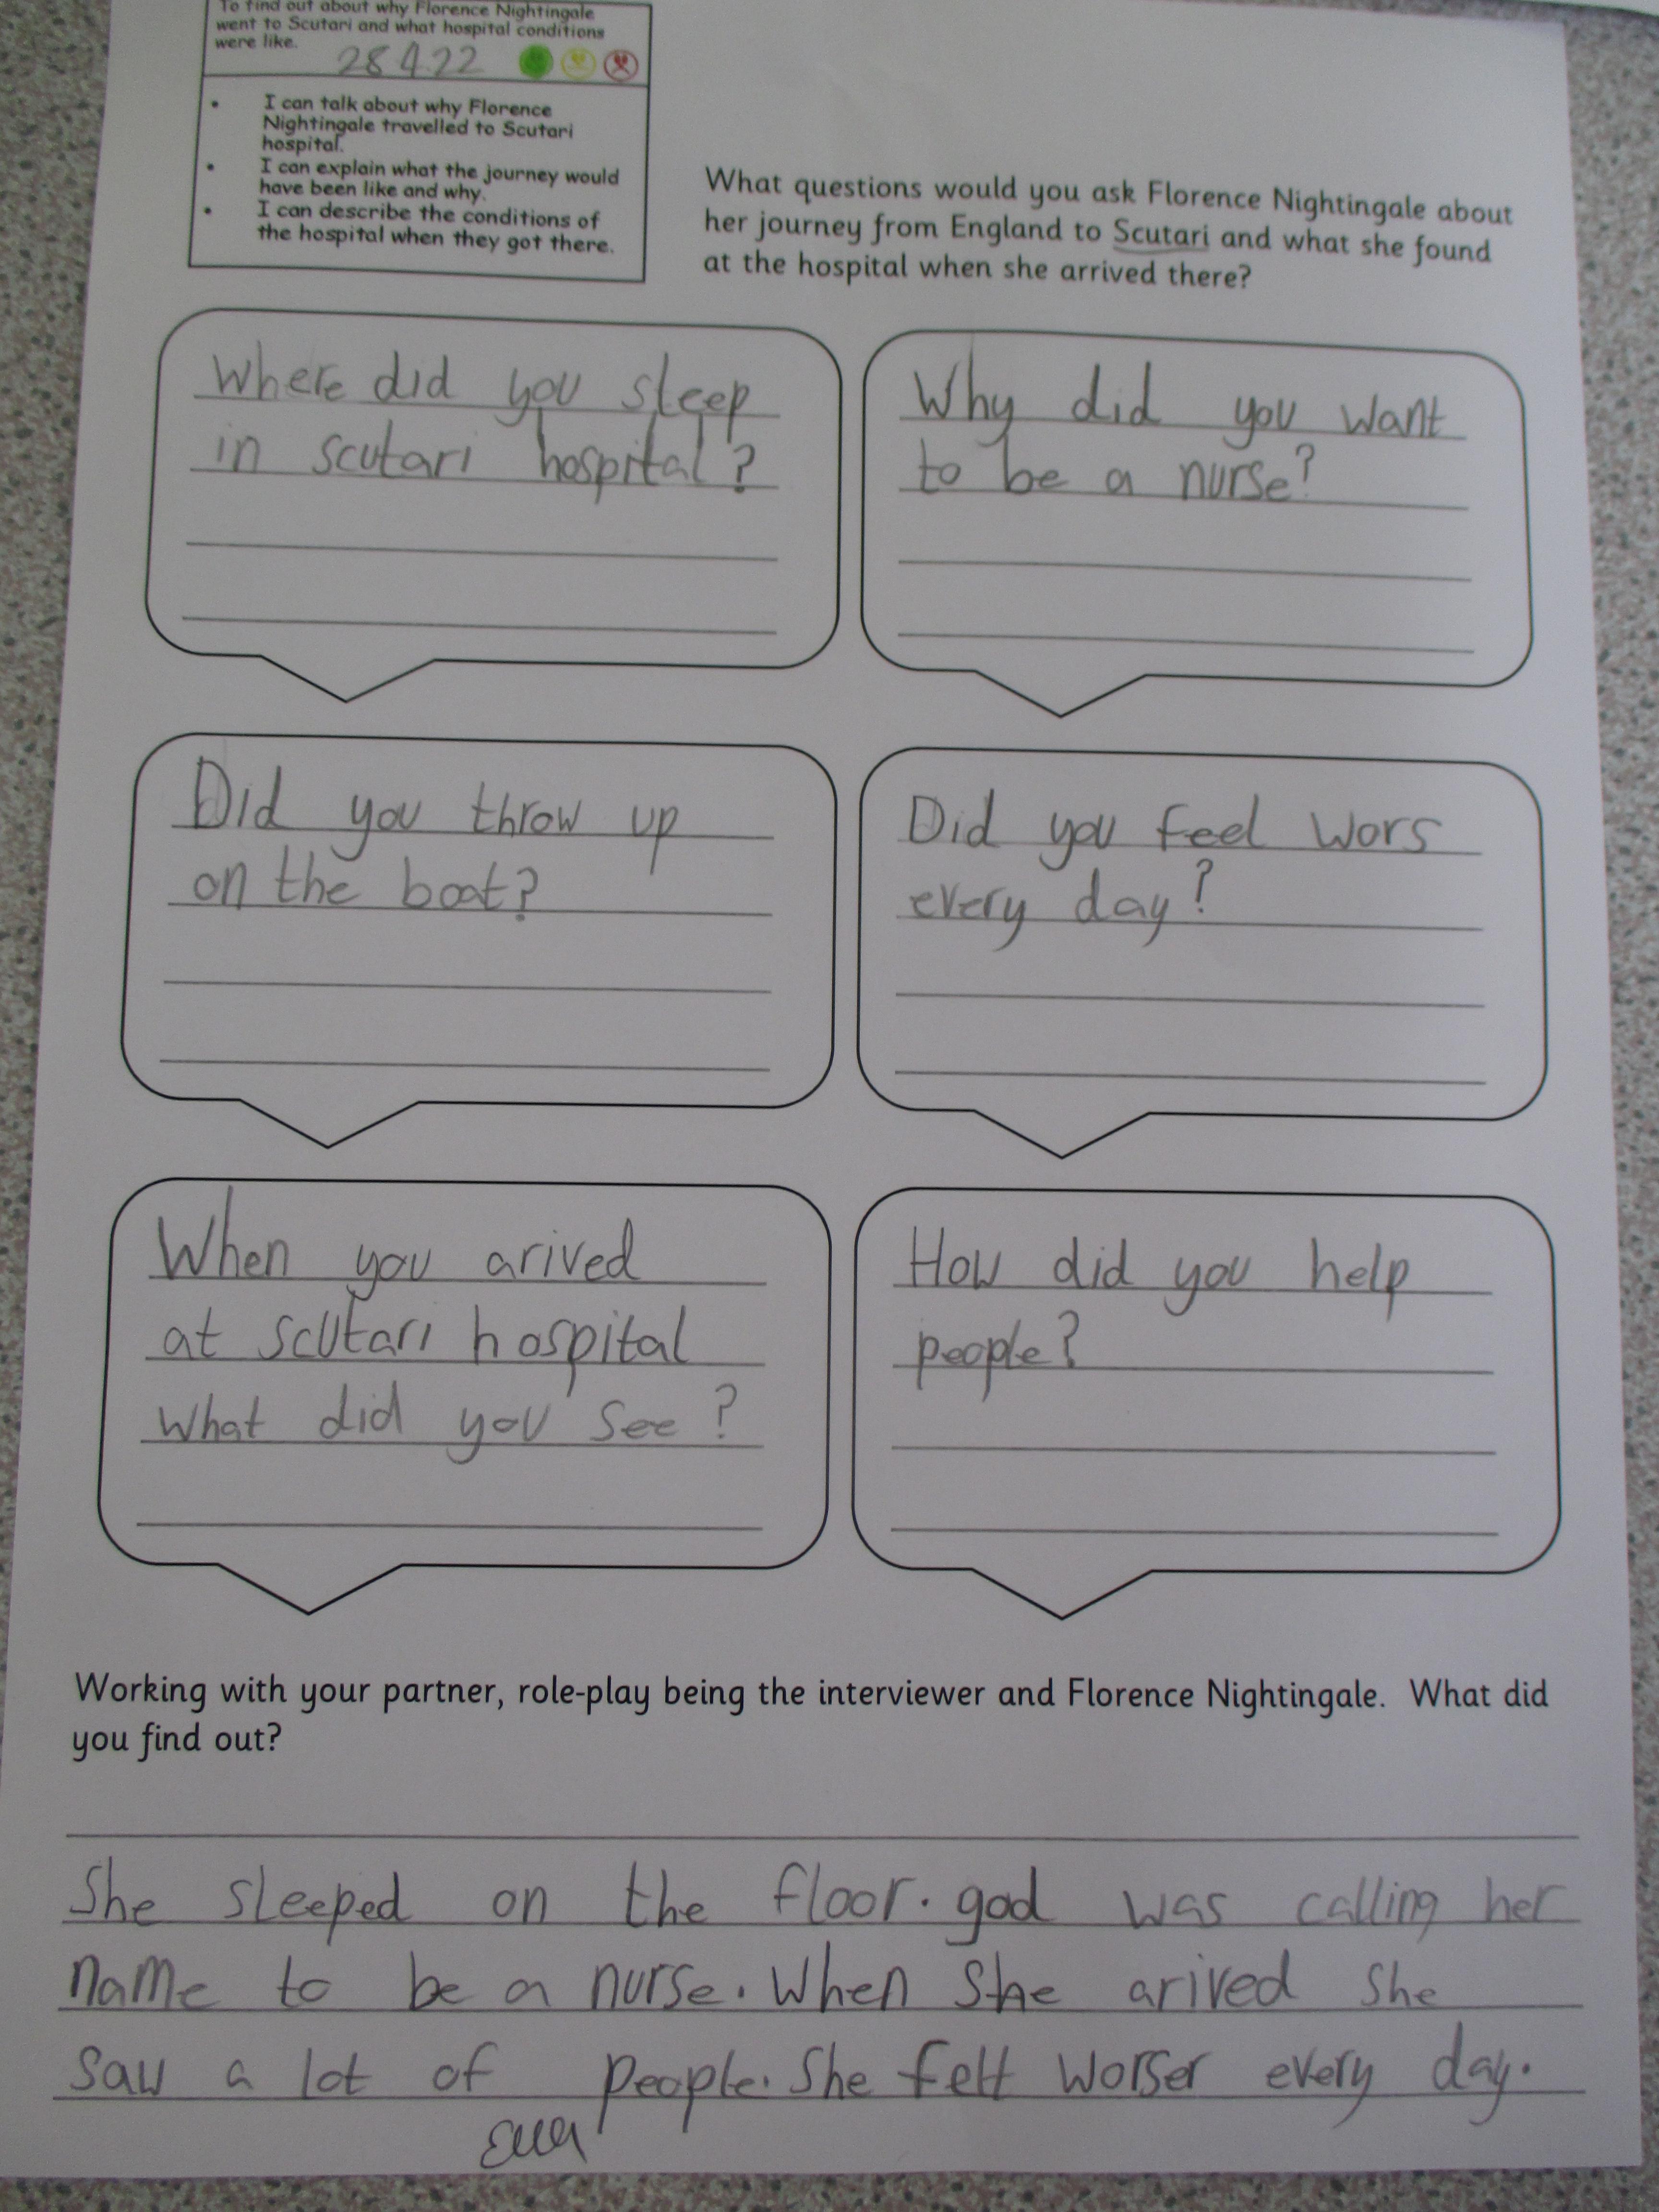 To find out about why Florence Nightingale
went to Scutari and what hospital conditions
were like.
28.4.22
• I can talk about why Florence
Nightingale travelled to Scutari
hospital.
• I can explain what the journey would
have been like and why.
• I can describe the conditions of
the hospital when they got there.
What questions would you ask Florence Nightingale about
her journey from England to Scutari and what she found
at the hospital when she arrived there?
Where did you sleep
in scutari hospital?
Why did you want
to be a nurse?
Did you throw up
on the boat?
Did you feel wors
every day?
When you arived
at scutari hospital
what did you see?
How did you help
people?
Working with your partner, role-play being the interviewer and Florence Nightingale. What did
you find out?
She sleeped on the floor. god was calling her
name to be a nurse. When She arived she
saw a lot of people. She felt worser every day.